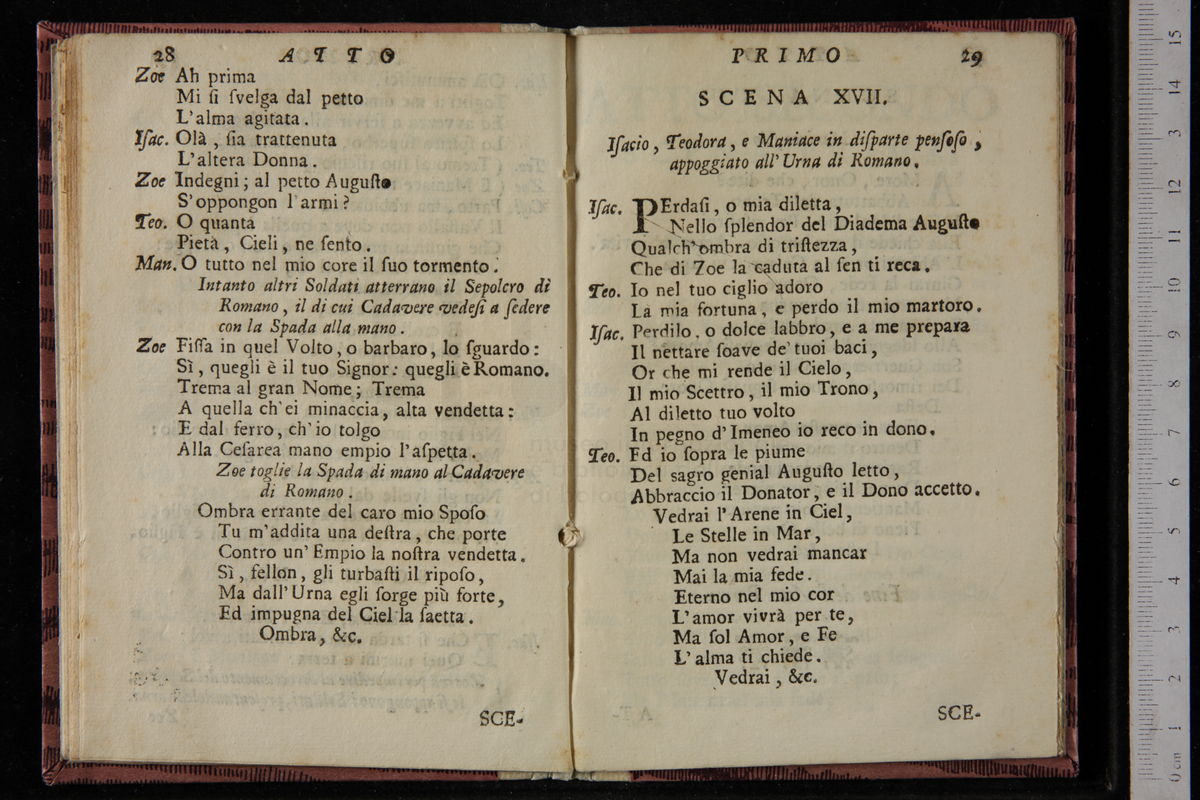 28 ATTO
Zoe Ah prima
Mi ſi ſvelga dal petto
L'alma agitata.
Iſac. Olà, ſia trattenuta
L'altera Donna.
Zoe Indegni; al petto Auguſto
S'oppongon l'armi?
Teo. O quanta
Pietà, Cieli, ne ſento.
Man. O tutto nel mio core il ſuo tormento.
Intanto altri Soldati atterrano il Sepolcro di
Romano, il di cui Cadavere vedeſi a ſedere
con la Spada alla mano.
Zoe Fiſſa in quel Volto, o barbaro, lo ſguardo:
Sì, quegli è il tuo Signor: quegli è Romano.
Trema al gran Nome; Trema
A quella ch'ei minaccia, alta vendetta:
E dal ferro, ch'io tolgo
Alla Ceſarea mano empio l'aſpetta.
Zoe toglie la Spada di mano al Cadavere
di Romano.
Ombra errante del caro mio Spoſo
Tu m'addita una deſtra, che porte
Contro un'Empio la noſtra vendetta.
Sì, fellon, gli turbaſti il ripoſo,
Ma dall'Urna egli ſorge più forte,
Ed impugna del Ciel la ſaetta.
Ombra, &c.
SCE-
PRIMO 29
SCENA XVII.
Iſacio, Teodora, e Maniace in diſparte penſoſo,
appoggiato all'Urna di Romano.
Iſac. PErdaſi, o mia diletta,
Nello ſplendor del Diadema Auguſto
Qualch'ombra di triſtezza,
Che di Zoe la caduta al ſen ti reca.
Teo. Io nel tuo ciglio adoro
La mia fortuna, e perdo il mio martoro.
Iſac. Perdilo, o dolce labbro, e a me prepara
Il nettare ſoave de' tuoi baci,
Or che mi rende il Cielo,
Il mio Scettro, il mio Trono,
Al diletto tuo volto
In pegno d'Imeneo io reco in dono.
Teo. Ed io ſopra le piume
Del sagro genial Auguſto letto,
Abbraccio il Donator, e il Dono accetto.
Vedrai l'Arene in Ciel,
Le Stelle in Mar,
Ma non vedrai mancar
Mai la mia fede.
Eterno nel mio cor
L'amor vivrà per te,
Ma ſol Amor, e Fe
L'alma ti chiede.
Vedrai, &c.
SCE-
0 cm 1 2 3 4 5 6 7 8 9 10 11 12 13 14 15